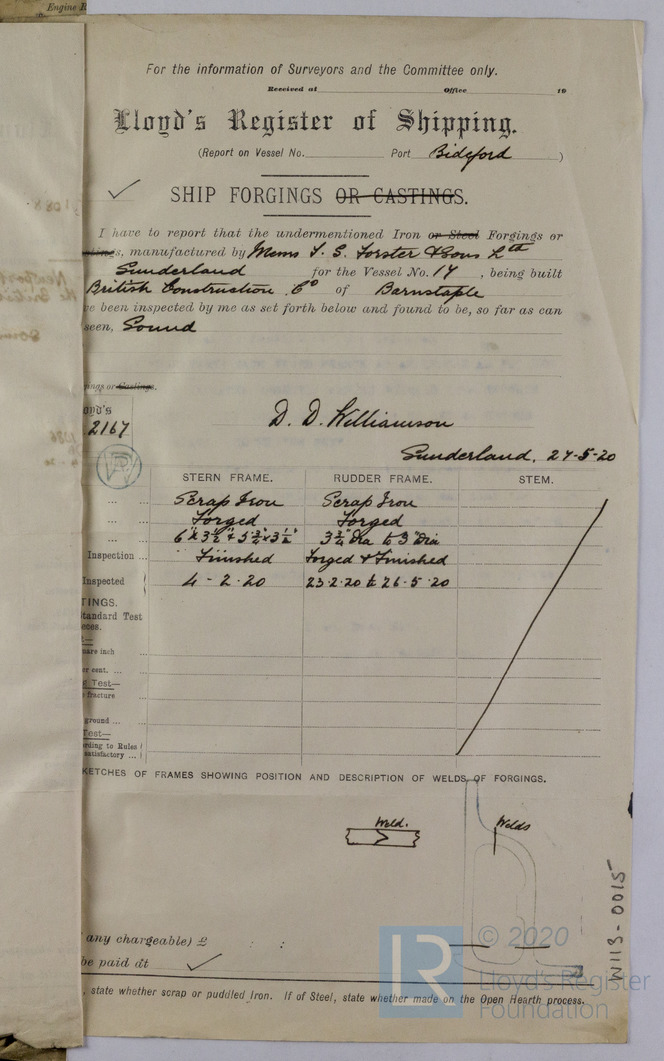 Engine R
For the information of Surveyors and the Committee only.
Received at Office 19
Lloyd's Register of Shipping.
(Report on Vessel No. Port Bideford )
SHIP FORGINGS OR CASTINGS.
I have to report that the undermentioned Iron or Steel Forgings or
manufactured by Messrs T. S. Forster & Sons Ltd
Sunderland for the Vessel No. 17, being built
British Construction Co of Barnstaple
ve been inspected by me as set forth below and found to be, so far as can
seen, Sound
ings or Castings.
oyd's
2167
D. D. Williamson
Sunderland, 27-5-20
STERN FRAME. RUDDER FRAME. STEM.
... ... Scrap Iron Scrap Iron
... ... Forged Forged
... ... 6" x 3½" & 5¾" x 3½" 3¾" dia to 3" dia
Inspection ... Finished Forged & Finished
Inspected 4-2-20 23-2-20 to 26-5-20
TINGS.
tandard Test
eces.
t—
uare inch
er cent. ... ...
g Test—
fracture
ground ... ...
Test—
ording to Rules
satisfactory ...
KETCHES OF FRAMES SHOWING POSITION AND DESCRIPTION OF WELDS OF FORGINGS.
Weld. Welds
any chargeable) £ : :
be paid at
, state whether scrap or puddled Iron. If of Steel, state whether made on the Open Hearth process.
W113-0015
LR © 2020
Lloyd's Register
Foundation